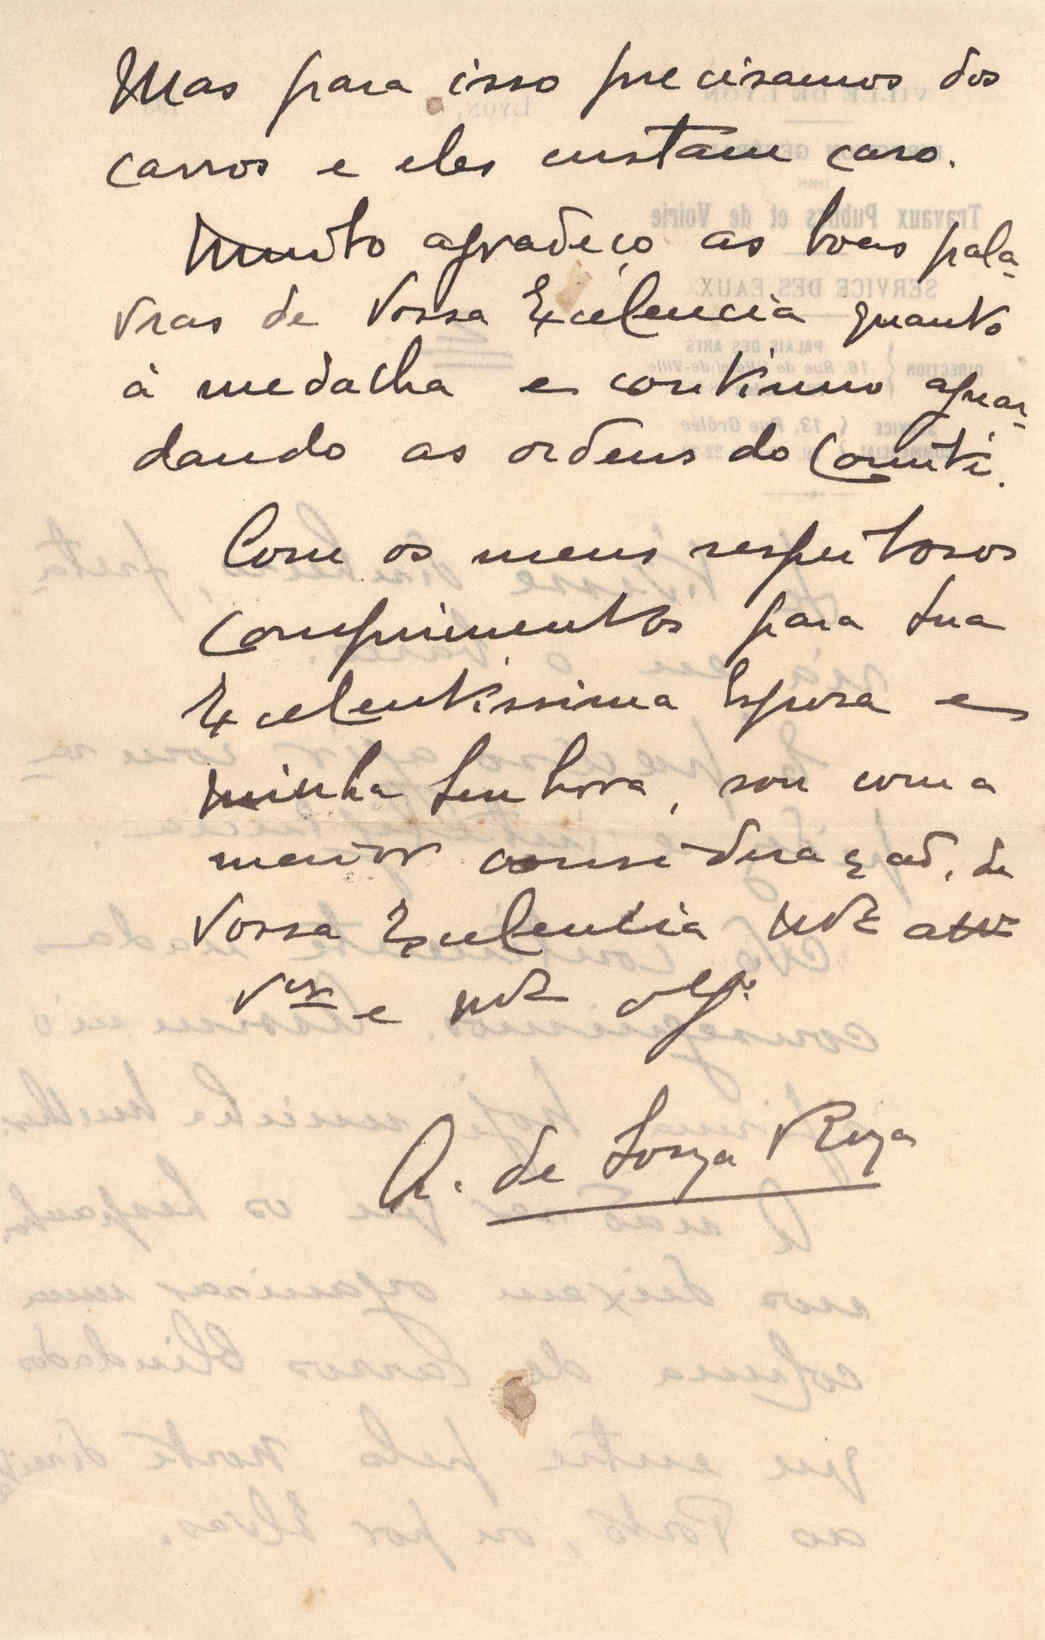 Mas para isso precisamos dos
carros e eles custam caro.
Muito agradeço as boas pala-
vras de Vossa Excelencia quanto
à medalha e continuo aguar-
dando as ordens do Comité.
Com os meus respeitosos
cumprimentos para Sua
Excelentissima Esposa e
minha Senhora, sou com a
maior consideração, de
Vossa Excelencia mto atto
vor e mto obgo
A. de Souza Roza